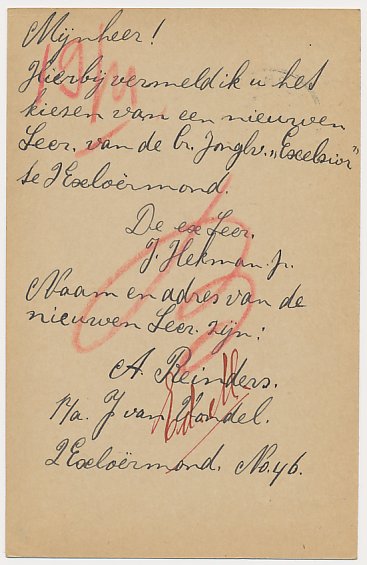 Mijnheer!
Hierbij vermeld ik u het
kiezen van een nieuwen
Secr. van de Cr. Jonglv. „Excelsior"
te 2Exloërmond.
De ex Secr.
J. Hekman. Jr.
Naam en adres van de
nieuwen Secr. zijn:
A. Reinders.
P/a. J van Hondel.
2Exloërmond. No. 46.
19/11